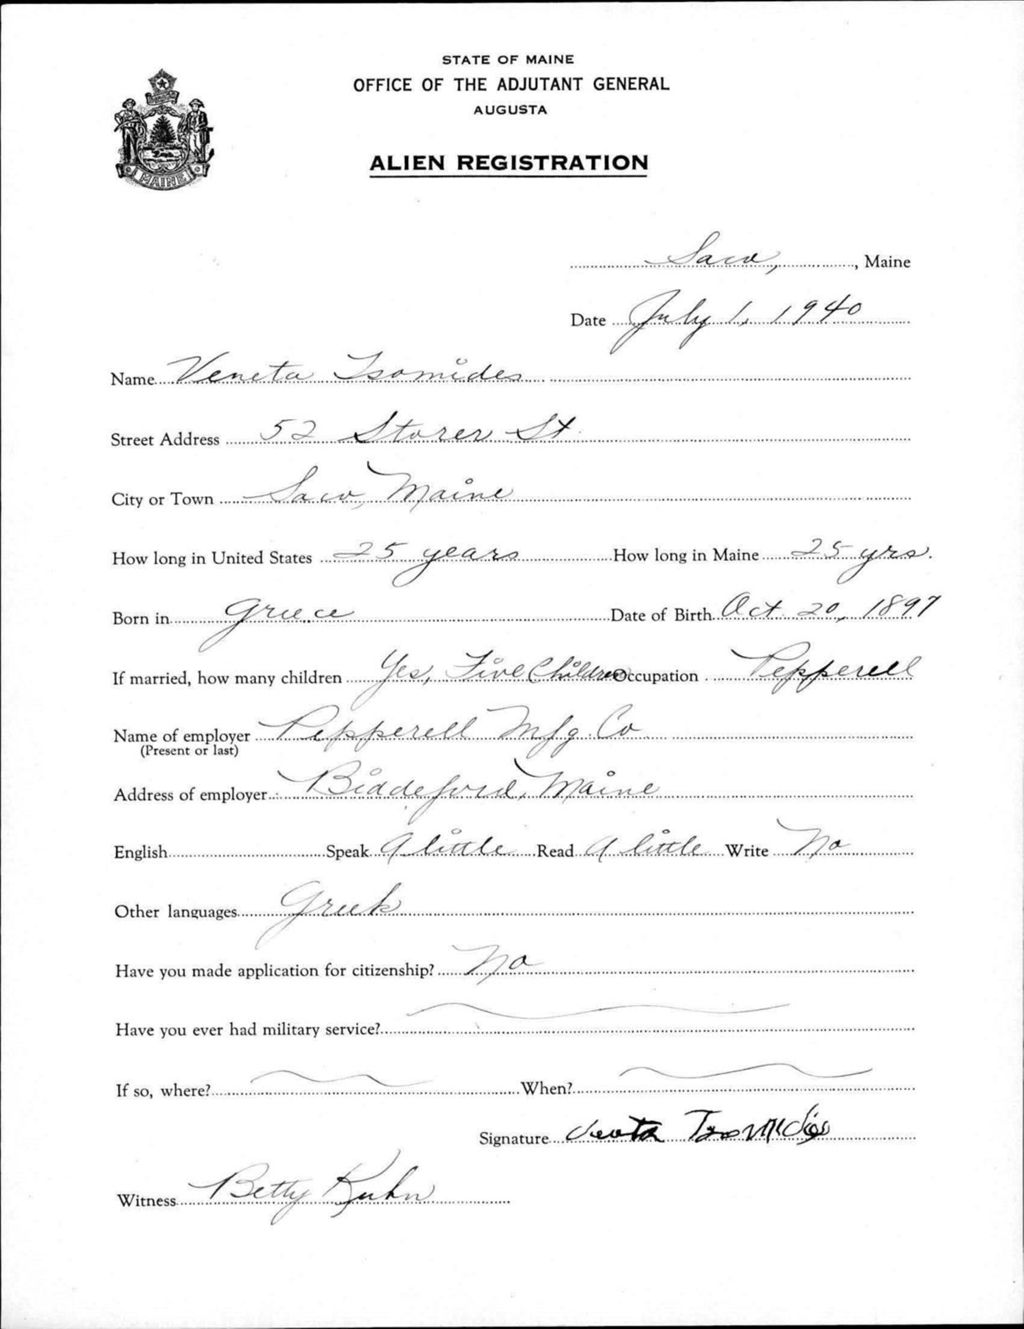 STATE OF MAINE
OFFICE OF THE ADJUTANT GENERAL
AUGUSTA
ALIEN REGISTRATION
MAINE
Saco, , Maine
Date July 1, 1940
Name Veneta Tsomides
Street Address 52 Storer St.
City or Town Saco, Maine
How long in United States 25 years How long in Maine 25 yrs.
Born in Greece Date of Birth Oct 20, 1897
If married, how many children Yes, Five Children Occupation Pepperell
Name of employer Pepperell Mfg. Co
(Present or last)
Address of employer Biddeford, Maine
English Speak A little Read A little Write No
Other languages Greek
Have you made application for citizenship? No
Have you ever had military service?
If so, where? When?
Signature Tsomides
Witness Betty Kuhn